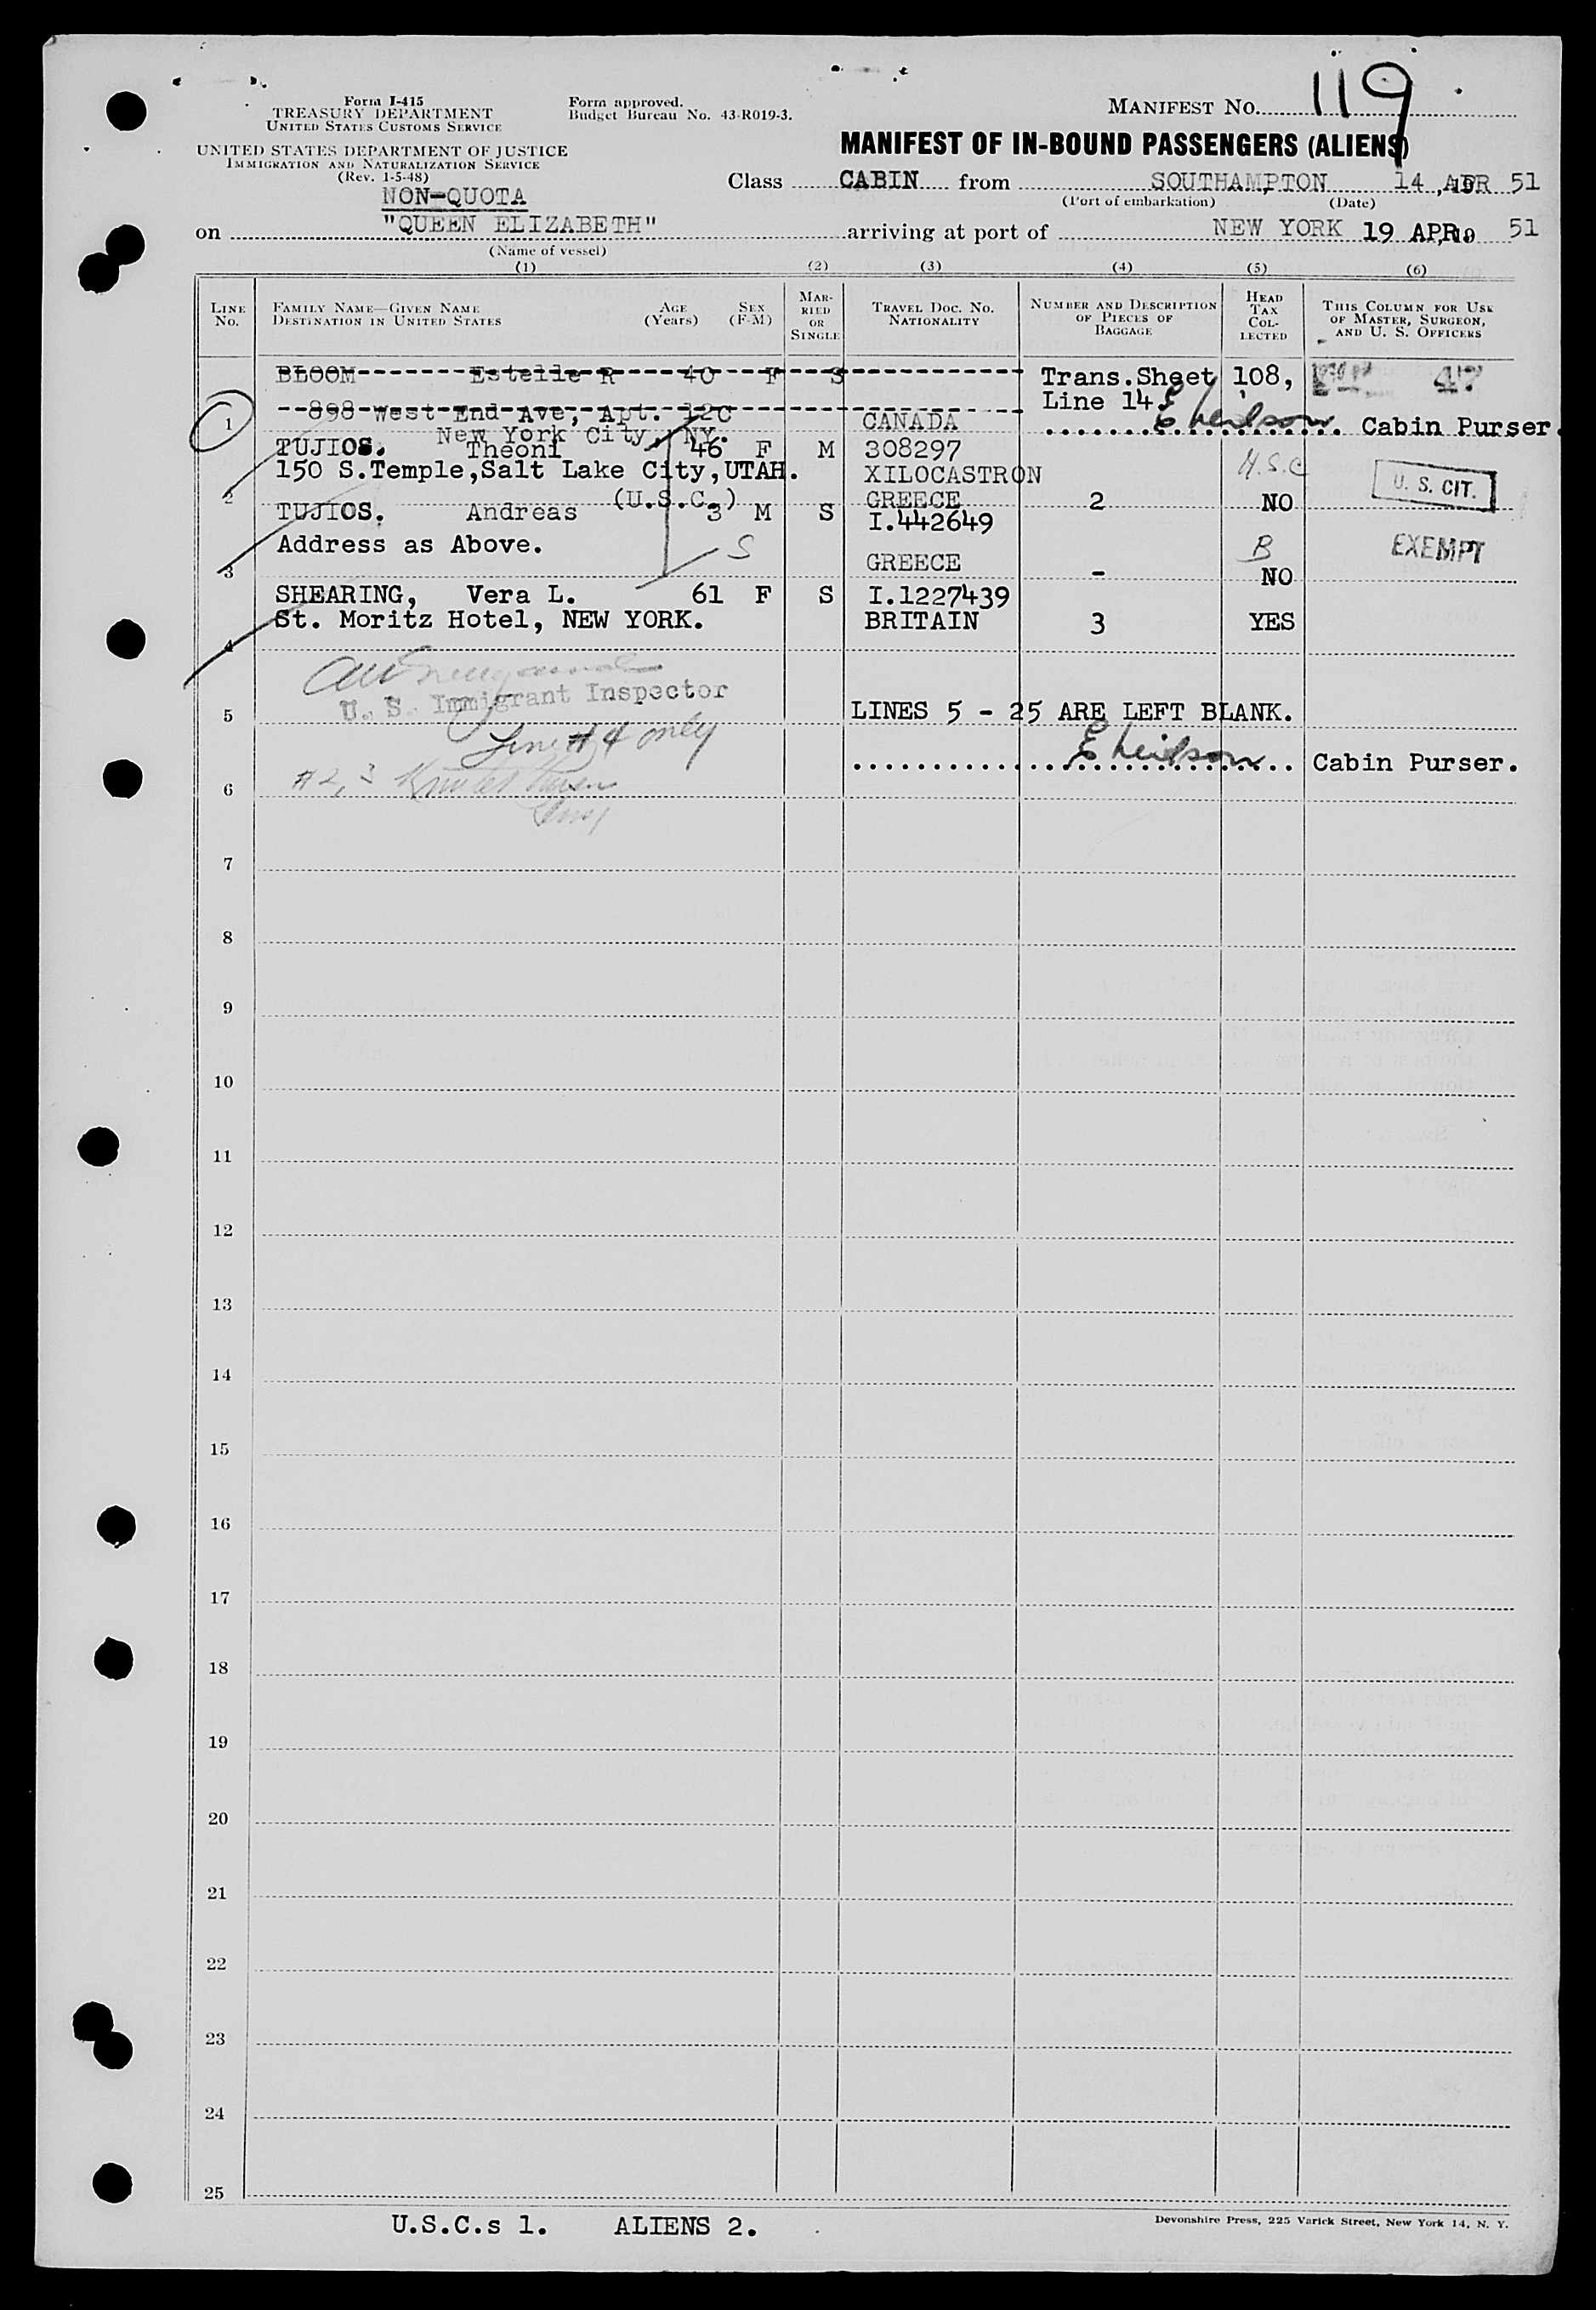 119
Form I-415
TREASURY DEPARTMENT
UNITED STATES CUSTOMS SERVICE
UNITED STATES DEPARTMENT OF JUSTICE
IMMIGRATION AND NATURALIZATION SERVICE
(Rev. 1-5-48)
NON-QUOTA
Form approved.
Budget Bureau No. 43-R019-3.
MANIFEST NO.
MANIFEST OF IN-BOUND PASSENGERS (ALIENS)
Class CABIN from SOUTHAMPTON 14 APR 51
(Port of embarkation) (Date)
on "QUEEN ELIZABETH" arriving at port of NEW YORK 19 APR. 19 51
(Name of vessel)
(1) (2) (3) (4) (5) (6)
LINE NO. FAMILY NAME—GIVEN NAME DESTINATION IN UNITED STATES AGE (Years) SEX (F-M) MARRIED OR SINGLE TRAVEL DOC. NO. NATIONALITY NUMBER AND DESCRIPTION OF PIECES OF BAGGAGE HEAD TAX COLLECTED THIS COLUMN FOR USE OF MASTER, SURGEON, AND U. S. OFFICERS
BLOOM Estelle R 40 F S Trans.Sheet 108, 47
898 West End Ave, Apt. 12C Line 14.
1 New York City, NY. CANADA E Neilson Cabin Purser.
TUJIOS. Theoni 46 F M 308297
150 S.Temple,Salt Lake City,UTAH. XILOCASTRON U.S.C
2 (U.S.C.) GREECE 2 NO U. S. CIT.
TUJIOS. Andreas 3 M S I.442649
Address as Above. S B EXEMPT
3 GREECE - NO
SHEARING, Vera L. 61 F S I.1227439
St. Moritz Hotel, NEW YORK. BRITAIN 3 YES
4
U. S. Immigrant Inspector
5 LINES 5 - 25 ARE LEFT BLANK.
Line #4 only
E Neilson Cabin Purser.
#2, 3
6
7
8
9
10
11
12
13
14
15
16
17
18
19
20
21
22
23
24
25
U.S.C.s 1. ALIENS 2.
Devonshire Press, 225 Varick Street, New York 14, N. Y.